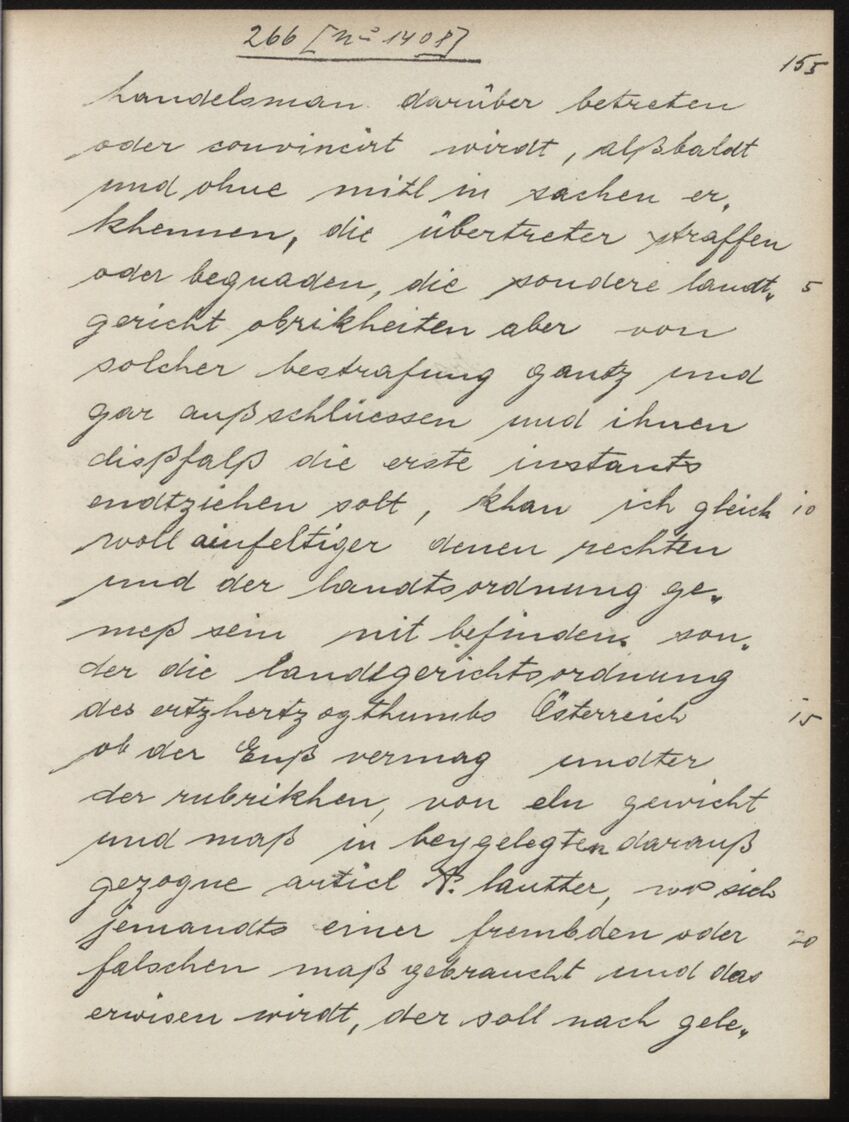 266 [No 1408]
155
handelsman darüber betreten
oder convincirt wirdt, alßbaldt
und ohne mitl in sachen er„
khennen, die übertreter straffen
oder begnaden, die sondere landt„ 5
gericht obrikheiten aber von
solcher bestrafung gantz und
gar außschlüessen und ihnen
dißfalß die erste instants
endtziehen solt, khan ich gleich 10
woll ainfeltiger denen rechten
und der landtsordnung ge„
meß sein nit befinden. son„
der die landtgerichtsordnung
des ertzhertzogthumbs Österreich 15
ob der Enß vermag undter
der rubrikhen, von eln gewicht
und maß in beygelegten darauß
gezogne articl lautter, wo sich
jemandts einer frembden oder 20
falschen maß gebraucht und das
erwisen wirdt, der soll nach gele„